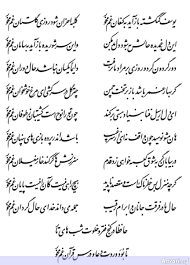 یوسف گمگشته بازآید بکنعان غم مخور کلبه احزان شود روزی گلستان غم مخور
این دل غمدیده حالش به شود دل بد مکن وین سر شوریده بازآید بسامان غم مخور
دور گردون گر دو روزی بر مراد ما نگشت دائما یکسان نباشد حال دوران غم مخور
گر بهار عمر باشد باز بر تخت چمن چتر گل بر سر کشی ای مرغ خوشخوان غم مخور
ای دل ار سیل فنا بنیاد هستی بر کند چون ترا نوح است کشتیبان ز طوفان غم مخور
هان مشو نومید چون واقف نه‌ای از سر غیب باشد اندر پرده بازیهای پنهان غم مخور
در بیابان گر بشوق کعبه خواهی زد قدم سرزنشها گر کند خار مغیلان غم مخور
گرچه منزل بس خطرناک است و مقصد ناپدید هیچ راهی نیست کانرا نیست پایان غم مخور
حال ما در فرقت جانان و ابرام رقیب جمله میداند خدای حال گردان غم مخور
حافظا در کنج فقر و خلوت شبهای تار
تا بود وردت دعا و درس قرآن غم مخور